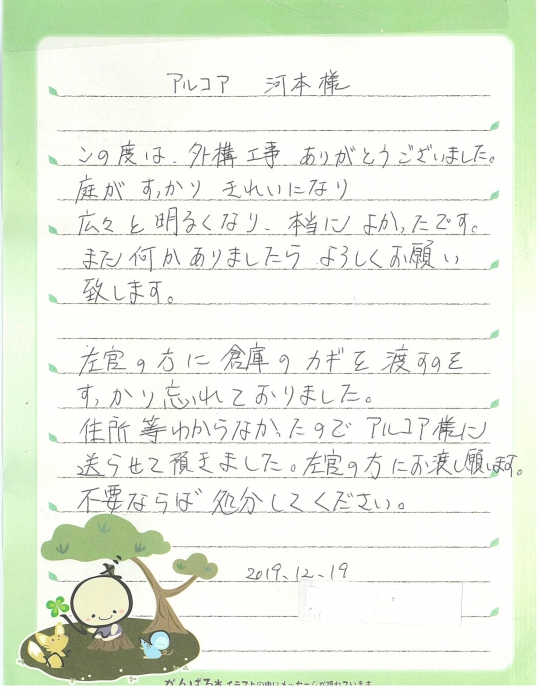 アルコア 河本様
この度は、外構工事 ありがとうございました。
庭が すっかり きれいになり
広々と明るくなり、本当に よかったです。
また何かありましたら よろしくお願い
致します。
左官の方に倉庫のカギを渡すのを
すっかり忘れておりました。
住所等わからなかったので アルコア様に
送らせて頂きました。左官の方にお渡し願います。
不要ならば処分してください。
2019.12.19
がんばる*イラストの中にメッセージが隠れています